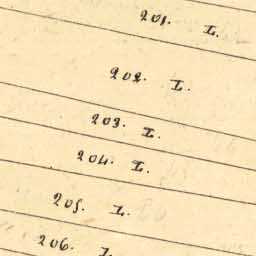 201. I.
202. I.
203. I.
204. I.
205. I.
206. I.